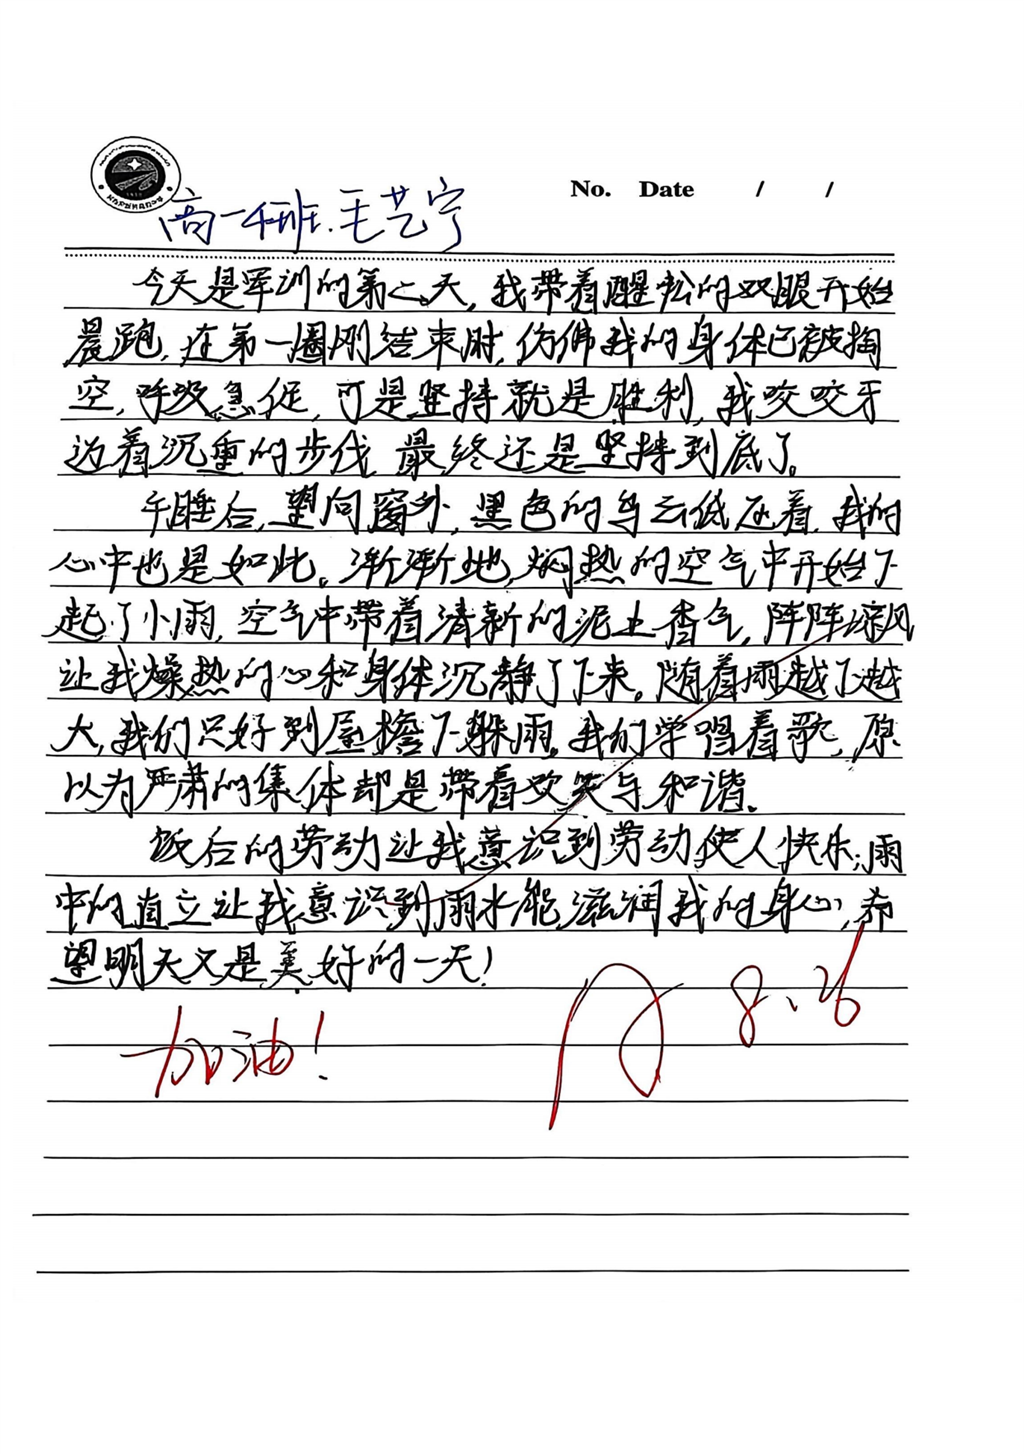 No. Date / /
高一1班.毛艺宁
今天是军训的第二天,我带着醒松的双眼开始
晨跑,在第一圈刚结束时,仿佛我的身体已被掏
空,呼吸急促,可是坚持就是胜利,我咬咬牙
迈着沉重的步伐 最终还是坚持到底了。
午睡后,望向窗外,黑色的乌云低压着,我的
心中也是如此。渐渐地,焖热的空气中开始下
起了小雨,空气中带着清新的泥土香气,阵阵凉风
让我燥热的心和身体沉静了下来。随着雨越下越
大,我们只好到屋檐下躲雨。我们学唱着歌,原
以为严肃的集体却是带着欢笑与和谐.
饭后的劳动让我意识到劳动使人快乐,雨
中的直立让我意识到雨水能滋润我的身心,希
望明天又是美好的一天!
加油!
8.26